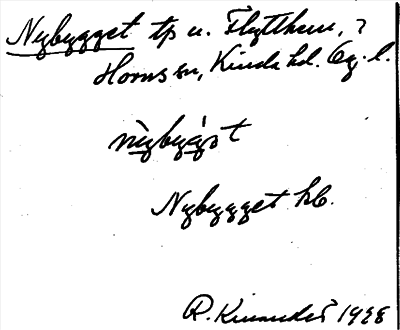 Nybygget tp u. Flytthem, ?
Horns sn, Kinda hd. Ög. l.
nỳbyǵǝt
Nybygget kb.
R. Kinander 1928